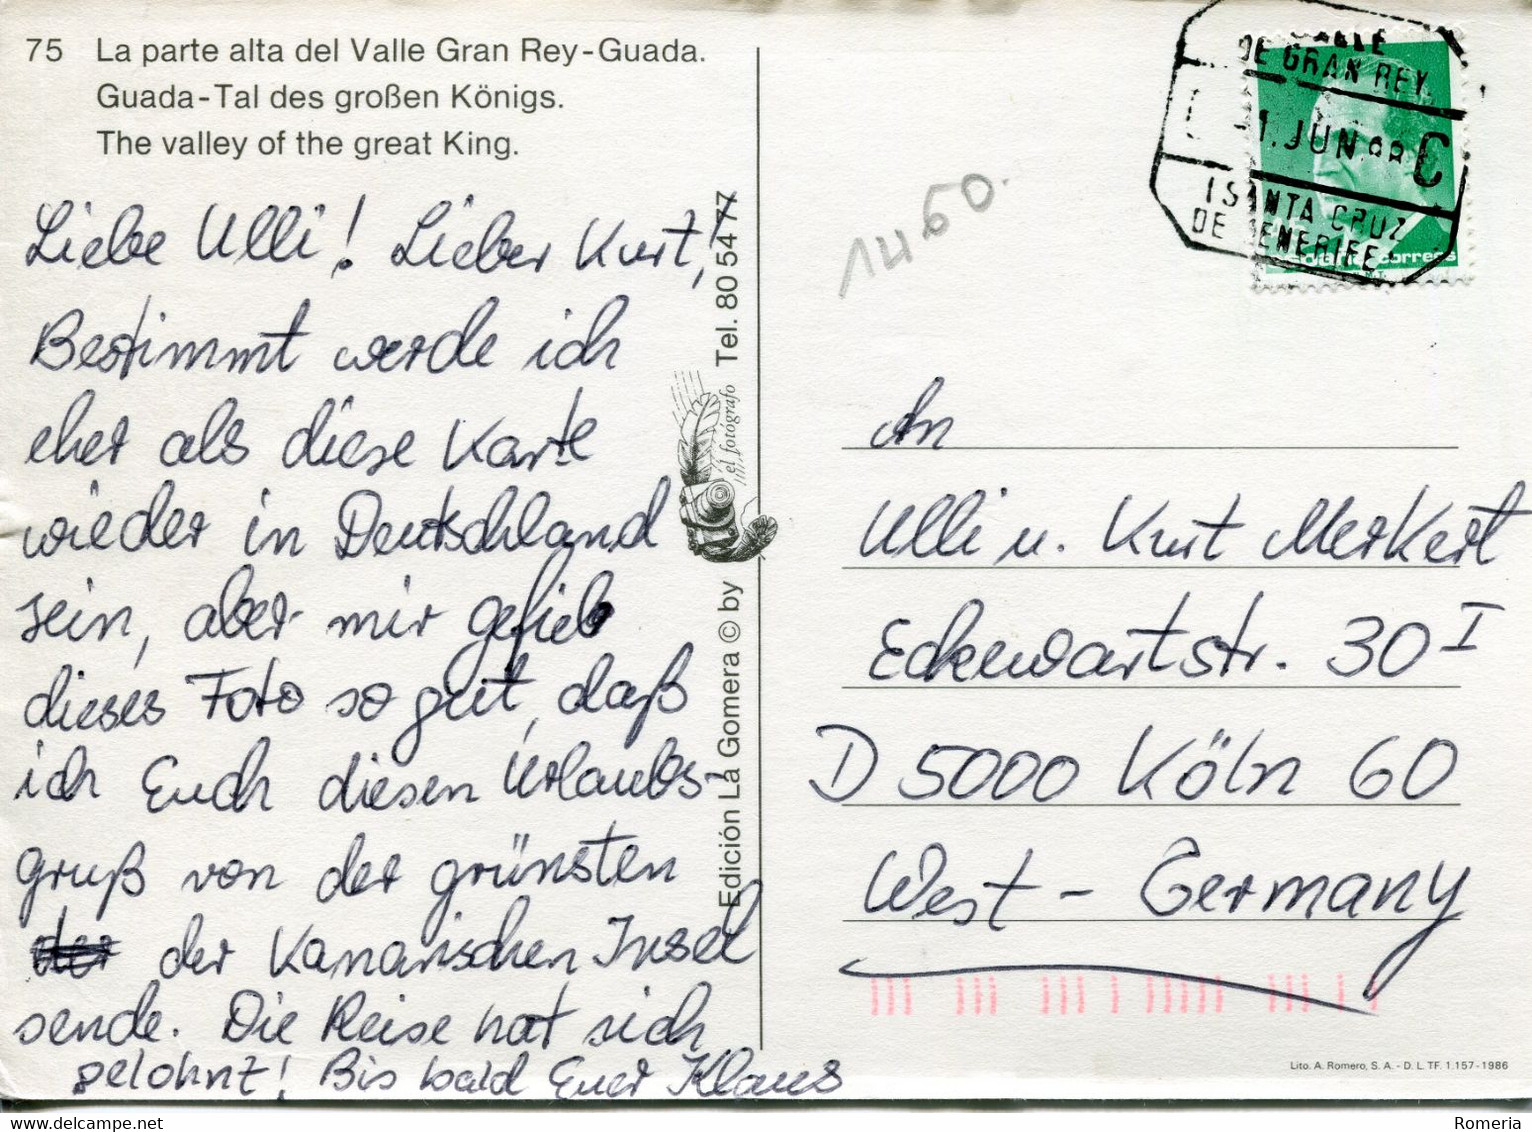 75 La parte alta del Valle Gran Rey-Guada.
Guada-Tal des großen Königs.
The valley of the great King.
Liebe Ulli! Lieber Kurt,
Bestimmt werde ich
eher als diese Karte
wieder in Deutschland
sein, aber mir gefiel
dieses Foto so gut, daß
ich Euch diesen Urlaubs-
gruß von der grünsten
der Kanarischen Insel
sende. Die Reise hat sich
gelohnt! Bis bald Euer Klaus
Edición La Gomera © by
el fotógrafo
Tel. 80 54 77
1460.
VALLE
DE GRAN REY.
1.JUN.88 C
SANTA CRUZ
DE TENERIFE
correos
An
Ulli u. Kurt Merkert
Eckewartstr. 30 I
D 5000 Köln 60
West - Germany
Lito. A. Romero, S. A. - D. L. TF. 1.157-1986
delcampe.net
Romeria